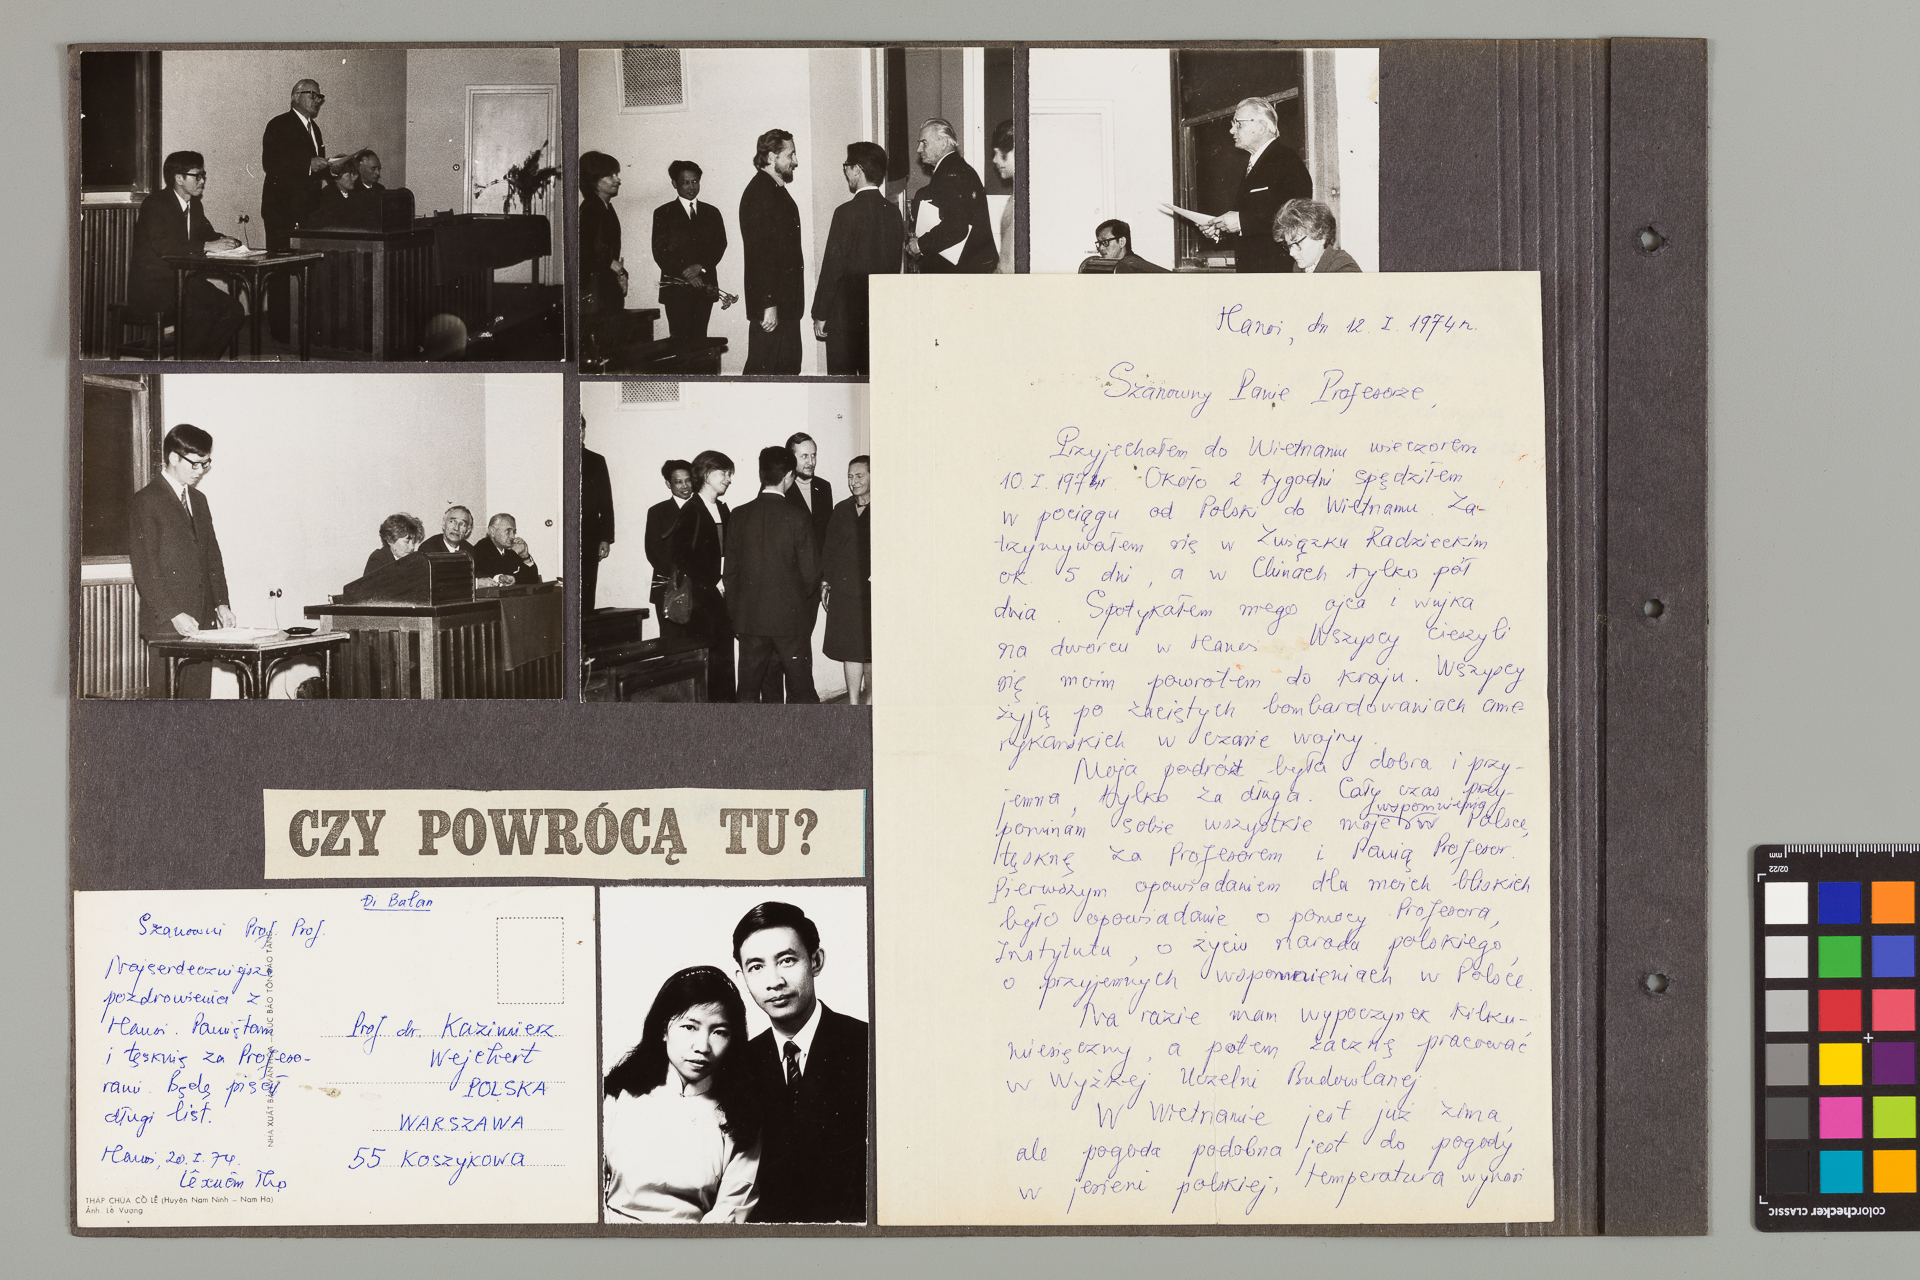 Hanoi, dn 12. I. 1974 r.
Szanowny Panie Profesorze,
Przyjechałem do Wietnamu wieczorem
10. I. 1974r. Około 2 tygodni spędziłem
w pociągu od Polski do Wietnamu. Za-
trzymywałem się w Związku Radzieckim
ok. 5 dni, a w Chinach tylko pół
dnia. Spotykałem mego ojca i wujka
na dworcu w Hanoi. Wszyscy cieszyli
się moim powrotem do kraju. Wszyscy
żyją po zaciętych bombardowaniach ame-
rykańskich w czasie wojny.
Moja podróż była dobra i przy-
jemna, tylko za długa. Cały czas przy-
wspomnienia
pominam sobie wszystkie moje w Polsce,
tęsknę za Profesorem i Panią Profesor.
Pierwszym opowiadaniem dla moich bliskich
było opowiadanie o pomocy Profesora,
Instytutu, o życiu narodu polskiego,
o przyjemnych wspomnieniach w Polsce.
Na razie mam wypoczynek kilku-
miesięczny, a potem zacznę pracować
w Wyższej Uczelni Budowlanej.
W Wietnamie jest już zima,
ale pogoda podobna jest do pogody
w jesieni polskiej, temperatura wynosi
CZY POWRÓCĄ TU?
Szanowni Prof. Prof.
Najserdeczniejsze
pozdrowienia z
Hanoi. Pamiętam
i tęsknię za Profeso-
rami. Będę pisał
długi list.
Hanoi, 20. I. 74.
Lê xuân Thọ
THÁP CHÙA CỔ LỄ (Huyện Nam Ninh – Nam Hà)
Ảnh Lê Vượng
NHÀ XUẤT BẢN VĂN
CỤC BẢO TỒN BẢO TÀNG
Prof. dr. Kazimierz
Wejchert
POLSKA
WARSZAWA
55 Koszykowa
mm
02/22
colorchecker CLASSIC